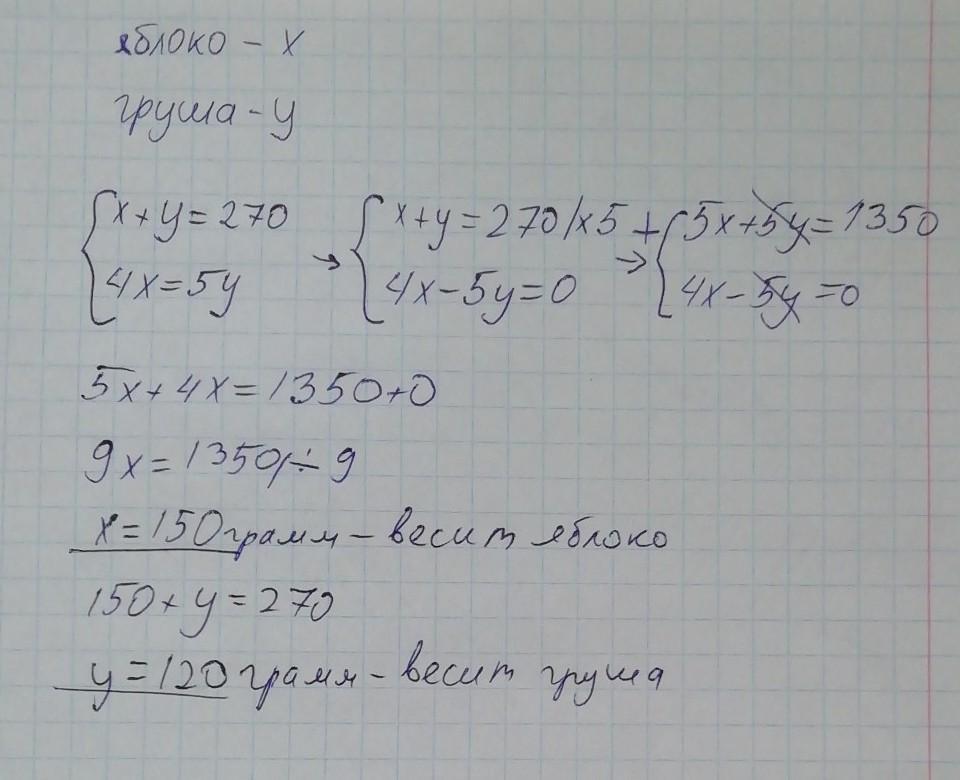 яблоко - x
груша - y
{x+y=270 → {x+y=270/x5 + → {5x+5y=1350
{4x=5y {4x-5y=0 {4x-5y=0
5x+4x=1350+0
9x=1350/÷9
x=150 грамм - весит яблоко
150+y=270
y=120 грамм - весит груша